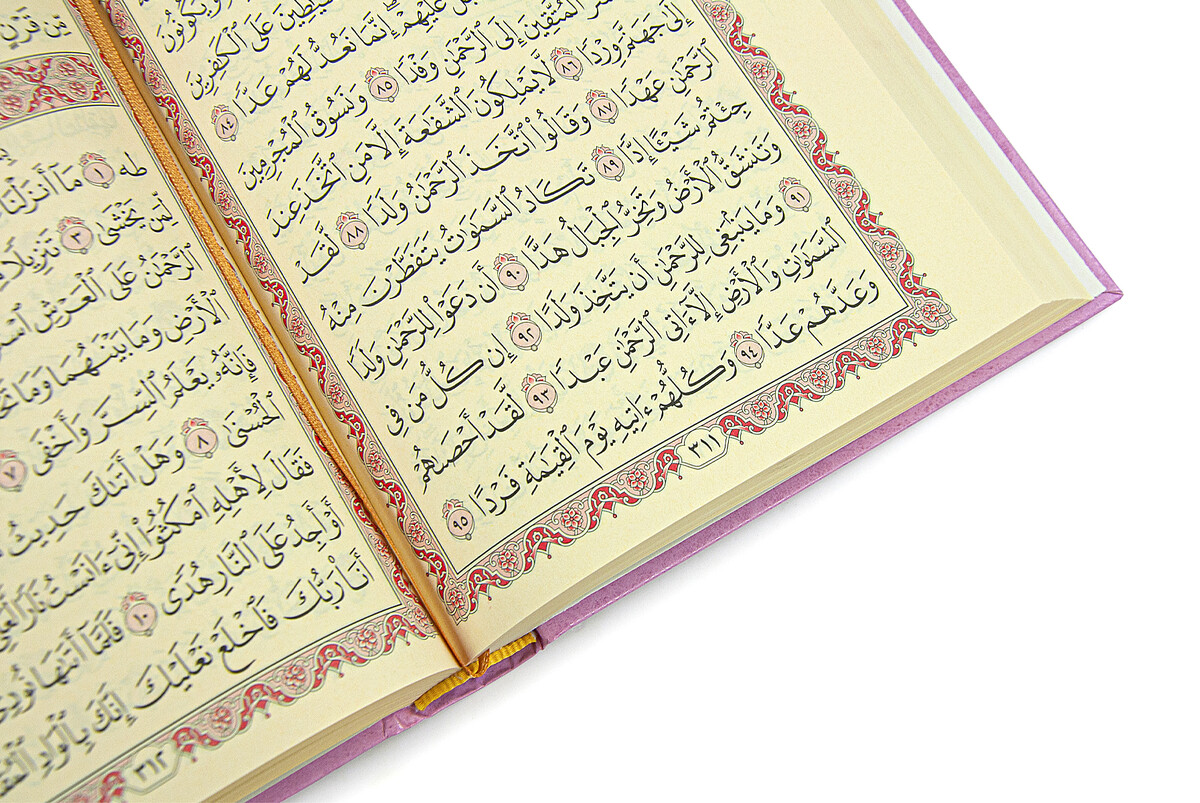 وَيَكُونُونَ
عَلَى ٱلْكَٰفِرِينَ
عَلَيْهِمْ إِنَّمَا نَعُدُّ لَهُمْ عَدًّا ٨٤
ٱلْمُتَّقِينَ إِلَى ٱلرَّحْمَٰنِ وَفْدًا ٨٥ وَنَسُوقُ ٱلْمُجْرِمِينَ
إِلَىٰ جَهَنَّمَ وِرْدًا ٨٦ لَّا يَمْلِكُونَ ٱلشَّفَٰعَةَ إِلَّا مَنِ ٱتَّخَذَ عِندَ
ٱلرَّحْمَٰنِ عَهْدًا ٨٧ وَقَالُوا۟ ٱتَّخَذَ ٱلرَّحْمَٰنُ وَلَدًا ٨٨ لَّقَدْ
جِئْتُمْ شَيْـًٔا إِدًّا ٨٩ تَكَادُ ٱلسَّمَٰوَٰتُ يَتَفَطَّرْنَ مِنْهُ
وَتَنشَقُّ ٱلْأَرْضُ وَتَخِرُّ ٱلْجِبَالُ هَدًّا ٩٠ أَن دَعَوْا۟ لِلرَّحْمَٰنِ وَلَدًا
٩١ وَمَا يَنۢبَغِى لِلرَّحْمَٰنِ أَن يَتَّخِذَ وَلَدًا ٩٢ إِن كُلُّ مَن فِى
ٱلسَّمَٰوَٰتِ وَٱلْأَرْضِ إِلَّآ ءَاتِى ٱلرَّحْمَٰنِ عَبْدًا ٩٣ لَّقَدْ أَحْصَىٰهُمْ
وَعَدَّهُمْ عَدًّا ٩٤ وَكُلُّهُمْ ءَاتِيهِ يَوْمَ ٱلْقِيَٰمَةِ فَرْدًا ٩٥
٣١١
مِّن قَرْنٍ
طه ١ مَآ أَنزَلْنَا
لِّمَن يَخْشَىٰ ٣ تَنزِيلًا
ٱلرَّحْمَٰنُ عَلَى ٱلْعَرْشِ
ٱلْأَرْضِ وَمَا بَيْنَهُمَا وَمَا
فَإِنَّهُۥ يَعْلَمُ ٱلسِّرَّ وَأَخْفَى ٧
ٱلْحُسْنَىٰ ٨ وَهَلْ أَتَىٰكَ حَدِيثُ
فَقَالَ لِأَهْلِهِ ٱمْكُثُوٓا۟ إِنِّىٓ ءَانَسْتُ نَارًا
أَوْ أَجِدُ عَلَى ٱلنَّارِ هُدًى ١٠ فَلَمَّآ أَتَىٰهَا
أَنَا۠ رَبُّكَ فَٱخْلَعْ نَعْلَيْكَ إِنَّكَ بِٱلْوَادِ
٣١٢